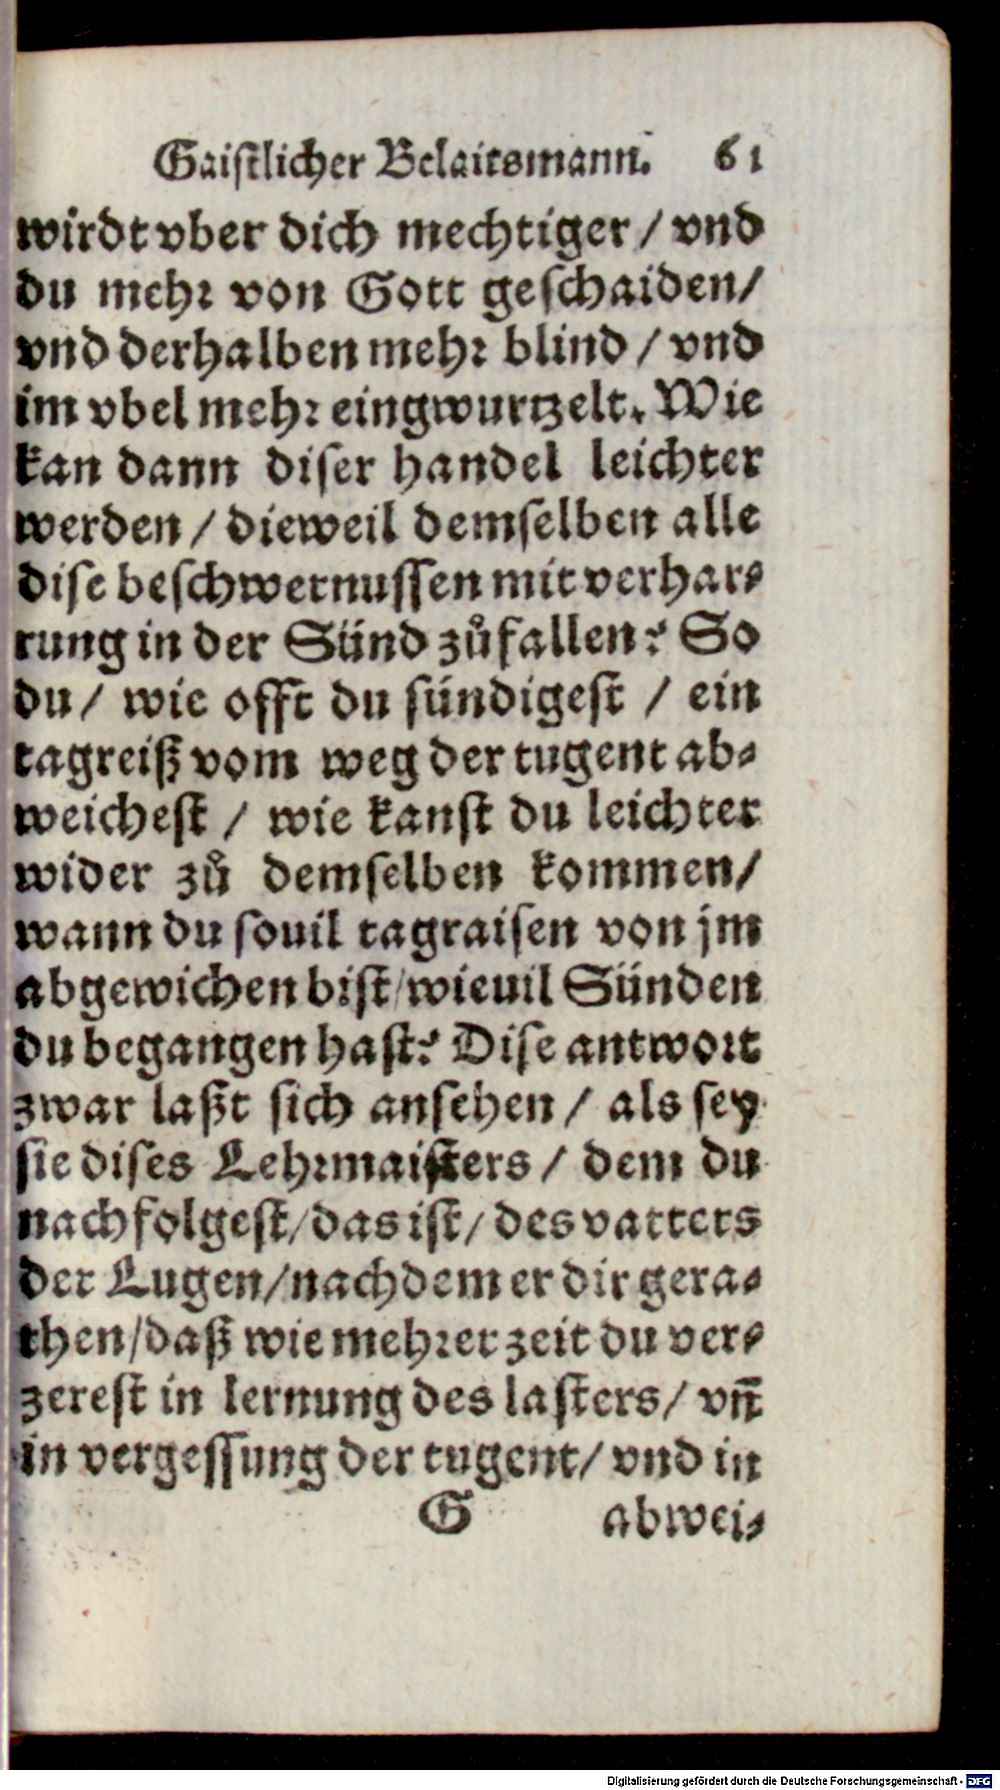 Gaistlicher Belaitsmann. 61
wirdt vber dich mechtiger / vnd
du mehr von Gott geschaiden/
vnd derhalben mehr blind / vnd
im vbel mehr eingwurtzelt. Wie
kan dann diser handel leichter
werden / dieweil demselben alle
dise beschwernussen mit verhar-
rung in der Sünd zůfallen? So
du / wie offt du sündigest / ein
tagreiß vom weg der tugent ab-
weichest / wie kanst du leichter
wider zů demselben kommen/
wann du souil tagraisen von jm
abgewichen bist / wieuil Sünden
du begangen hast? Dise antwort
zwar laßt sich ansehen / als sey
sie dises Lehrmaisters / dem du
nachfolgest/das ist/ des vatters
der Lugen/nachdem er dir gera-
then/daß wie mehrer zeit du ver-
zerest in lernung des lasters/ vn̄
in vergessung der tugent/ vnd in
G abwei-
Digitalisierung gefördert durch die Deutsche Forschungsgemeinschaft - DFG